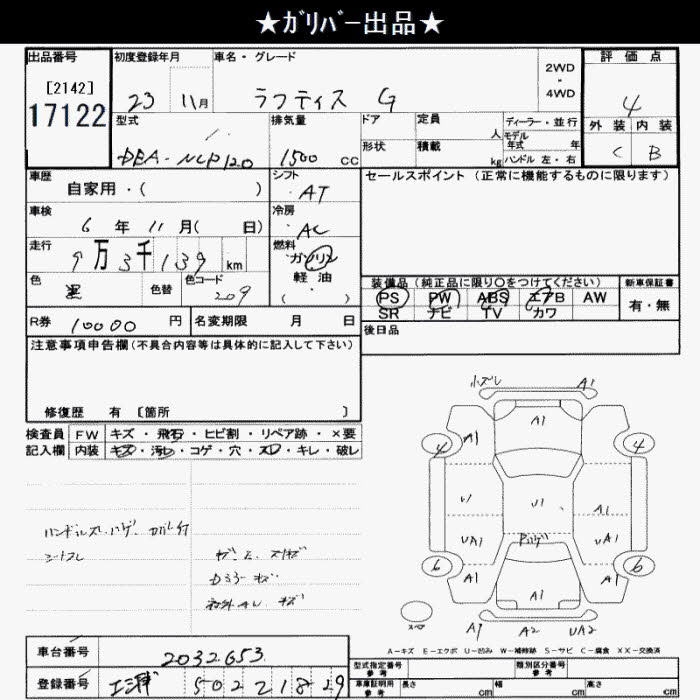 ★ｶﾞﾘﾊﾞｰ出品★
出品番号
[2142]
17122
初度登録年月
23 11月
車名・グレード
ラフティス G
2WD
・
4WD
評価点
4
外装 内装
C B
型式
DBA-NCP120
排気量
1500 CC
ドア
形状
定員
人
積載
kg
ディーラー・並行
モデル
年式 年
ハンドル 左・右
車歴
自家用・( )
シフト
AT
セールスポイント (正常に機能するものに限ります)
車検
6 年 11 月( 日)
冷房
AC
走行
9万3千139 km
燃料
ガソリン
軽油
( )
色
黒
色替
色コード
209
装備品 (純正品に限り○をつけてください)
PS PW ABS エアB AW
SR ナビ TV カワ
新車保証書
有・無
R券 10000 円
名変期限 月 日
後日品
注意事項申告欄 (不具合内容等は具体的に記入して下さい)
修復歴 有 [箇所 ]
検査員 FW キズ・飛石・ヒビ割・リペア跡・×要
記入欄 内装 キズ・汚れ・コゲ・穴・スレ・キレ・破レ
小ズレ A1
A1
4 A1 4
U1 U1 A1
UA1 UA1
6 A1 A1 A1 6
スペア
A9 A2 UA2
シートスレ
A-キズ E-エクボ U-凹み W-補修跡 S-サビ C-腐食 XX-交換済
車台番号 2032653
登録番号 502 2189
型式指定番号
参考
類別区分番号
参考
車庫証明用
参考
長さ cm 幅 cm 高さ cm